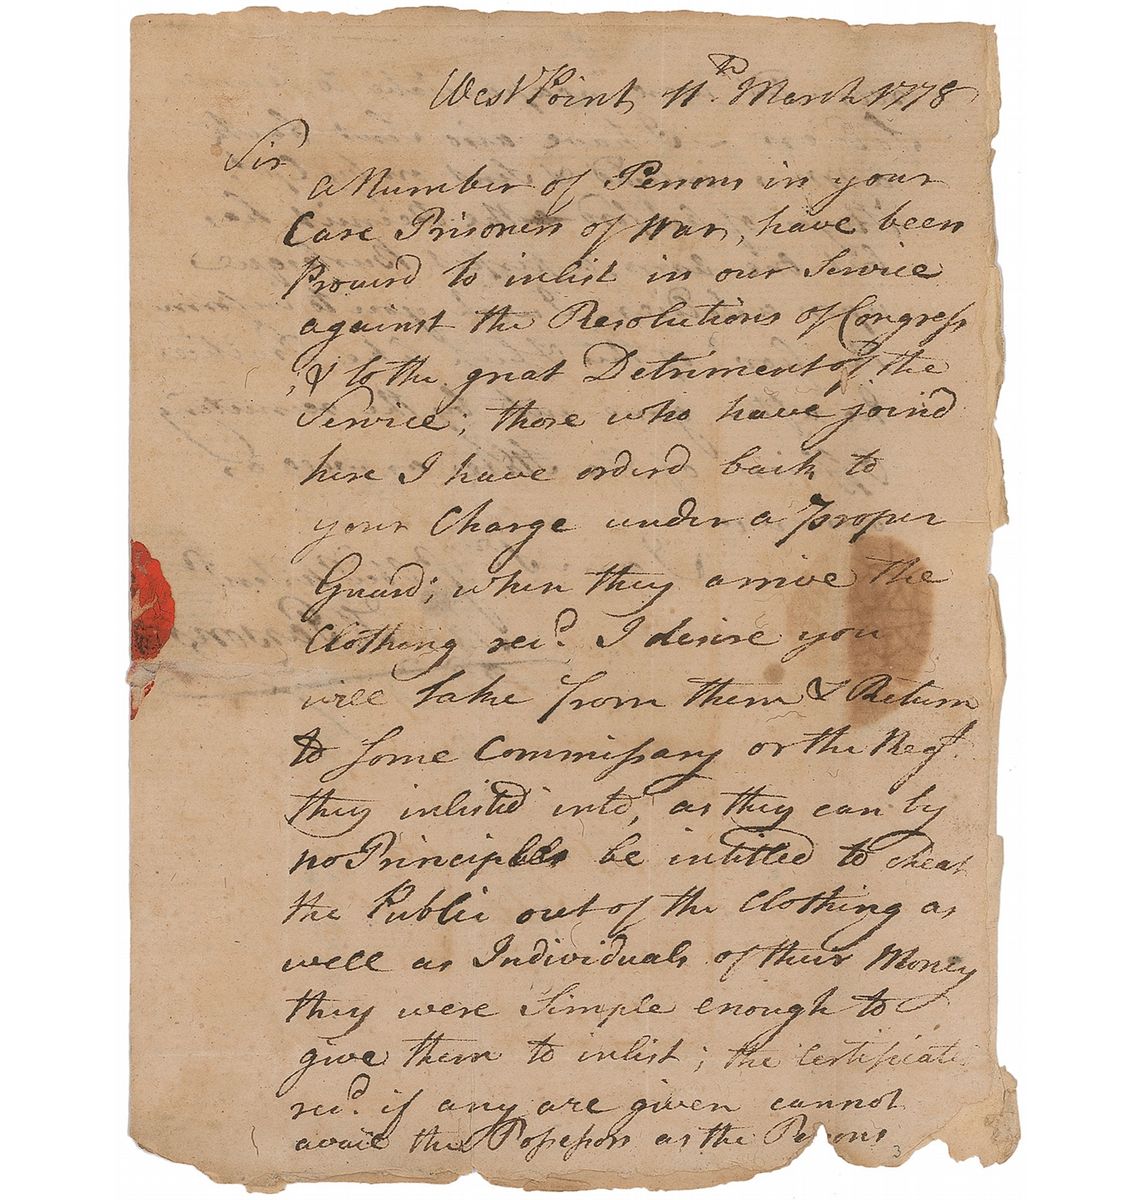 West Point, 11th March 1778
Sir
a Number of Persons in your
Care Prisoners of War, have been
Procurd to inlist in our Service
against the Resolutions of Congress
& to the great Detriment of the
Service; those who have joind
here I have orderd back to
your Charge under a Proper
Guard; when they arrive the
Clothing recd. I desire you
will take from them & Return
to some Commissary or the Regt.
they inlisted into, as they can by
no Principles be intitled to cheat
the Public out of the Clothing as
well as Individuals of their Money
they were Simple enough to
give them to inlist; the Certificate
recd. if any are given cannot
avail the Possessors as the Persons